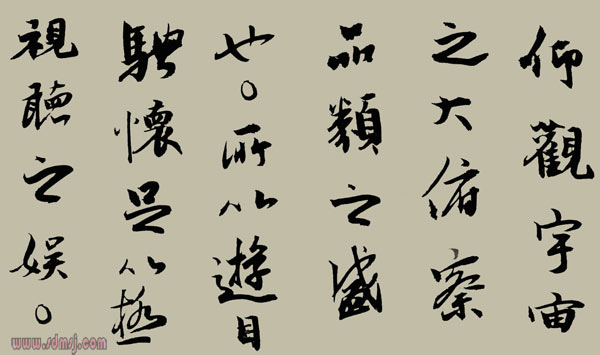 仰觀宇宙
之大俯察
品類之盛
也。所以遊目
騁懷足以極
視聽之娛。
www.sdmsj.com